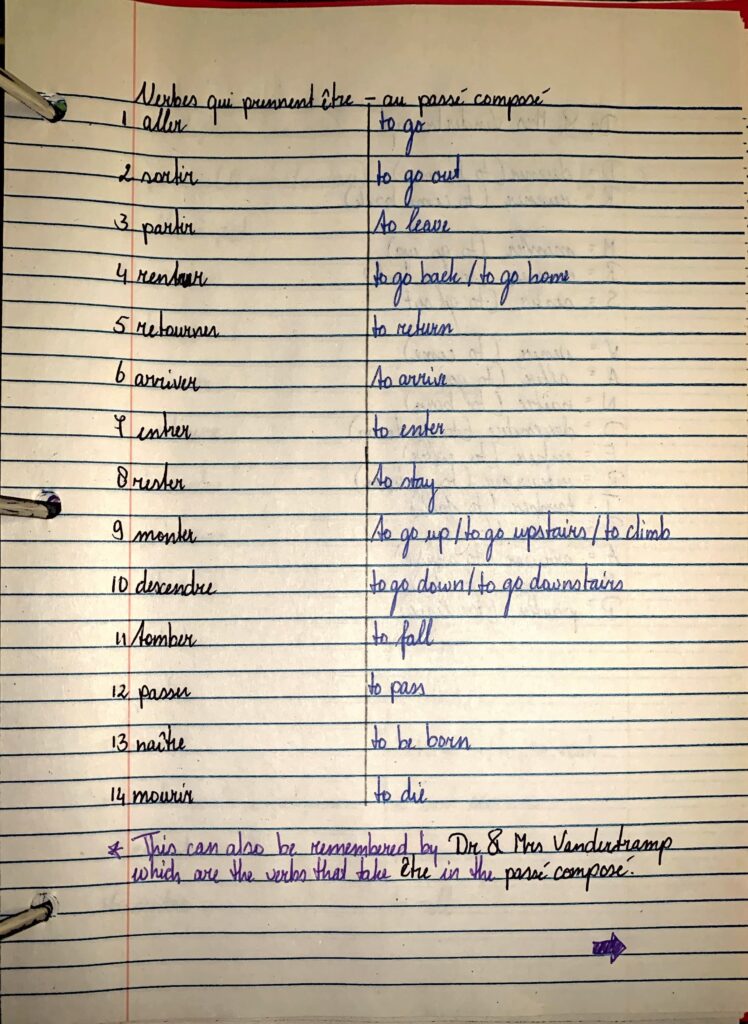 Verbes qui prennent être - au passé composé
1 aller to go
2 sortir to go out
3 partir to leave
4 rentrer to go back / to go home
5 retourner to return
6 arriver to arrive
7 entrer to enter
8 rester to stay
9 monter to go up / to go upstairs / to climb
10 descendre to go down / to go downstairs
11 tomber to fall
12 passer to pass
13 naître to be born
14 mourir to die
* This can also be remembered by Dr & Mrs Vandertramp
which are the verbs that take être in the passé composé.